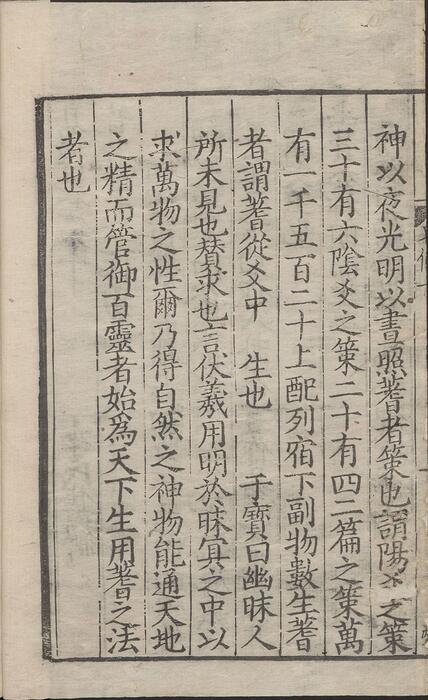 神以夜光明以晝照蓍者策也謂陽爻之策
三十有六陰爻之策二十有四二篇之策萬
有一千五百二十上配列宿下副物數生蓍
者謂蓍從爻中　生也　于寶曰幽昧人
所未見也賛求也言伏羲用明於昧冥之中以
求萬物之性爾乃得自然之神物能通天地
之精而管御百靈者始為天下生用蓍之法
者也